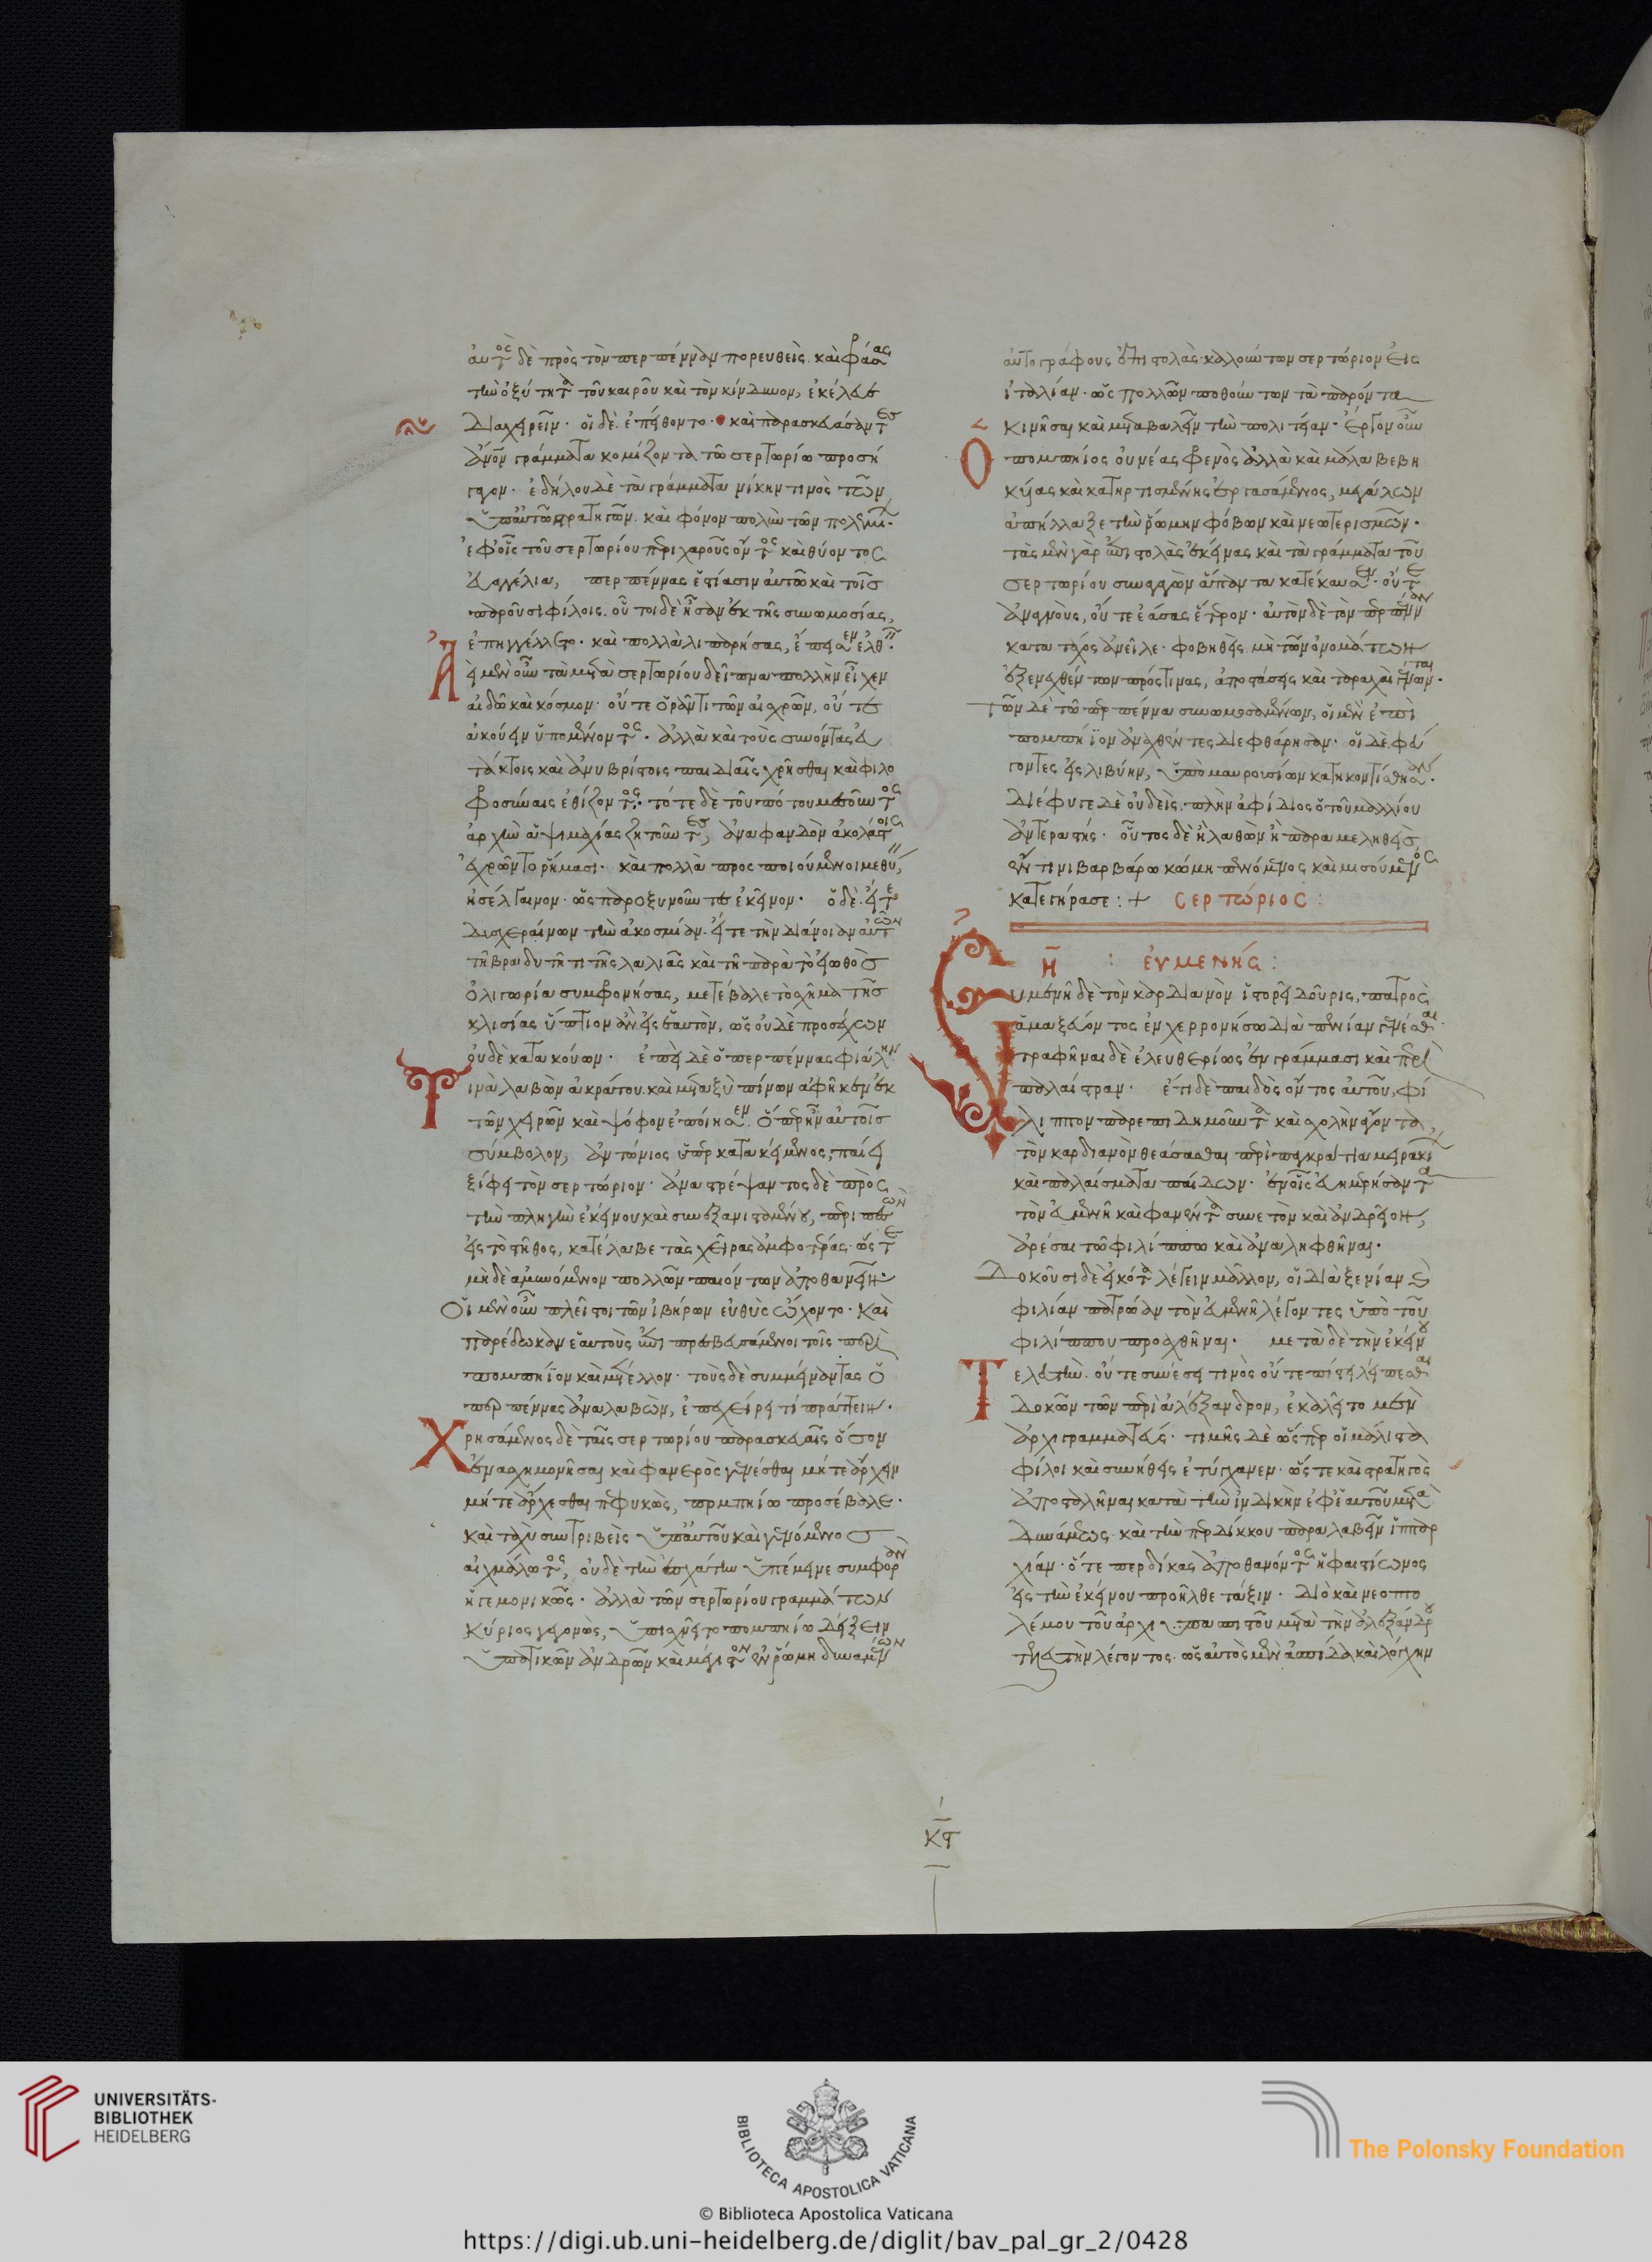 αὐτὸς δὲ πρὸς τὸν περπένναν πορευθεὶς. καὶ φράσας
τὴν ὀξύτητα τοῦ καιροῦ καὶ τὸν κίνδυνον, ἐκέλευε
διαχειρεῖν. οἱ δὲ ἐπείθοντο. καὶ παρασκευάσαντες
ἄνθρωπον γράμματα κομίζοντα τῶ σερτωρίω προσή
γαγον. ἐδήλου δὲ τὰ γράμματα νίκην τινὸς τῶν
ὑπ' αὐτῶ στρατηγῶν. καὶ φόνον πολὺν τῶν πολεμίων.
ἐφ' οἷς τοῦ σερτωρίου περιχαροῦς ὄντος καὶ θύοντος
εὐαγγέλια, περπέννας ἑστίασιν αὐτῶ καὶ τοῖς
παροῦσι φίλοις. οὗτοι δὲ ἦσαν ἐκ τῆς συνωμοσίας,
ἐπηγγέλλετο. καὶ πολλὰ λιπαρήσας, ἔπεισεν ἐλθεῖν.
ἀεὶ μὲν οὖν τὰ μετὰ σερτωρίου δεῖπνα πολλὴν εἶχεν
αἰδῶ καὶ κόσμον. οὔτε ὁρᾶν τι τῶν αἰσχρῶν, οὔτε
ἀκούειν ὑπομένοντος. ἀλλὰ καὶ τοὺς συνόντας εὐ
τάκτοις καὶ ἀνυβρίστοις παιδιαῖς χρῆσθαι καὶ φιλο
φροσύναις ἐθίζοντος. τότε δὲ τοῦ πότου μεσοῦντος
ἀρχὴν ἁψιμαχίας ζητοῦντες, ἀναφανδὸν ἀκολάστοις
ἐχρῶντο ῥήμασι. καὶ πολλὰ προσποιούμενοι μεθύειν,
ἠσέλγαινον. ὡς παροξυνοῦντες ἐκεῖνον. ὁ δὲ εἴτε
δυσχεραίνων τὴν ἀκοσμίαν. εἴτε τὴν διάνοιαν αὐτῶν
τῆ βραδυτῆτι τῆς λαλιᾶς καὶ τῆ παρὰ τὸ εἰωθὸς
ὀλιγωρία συμφρονήσας, μετέβαλε τὸ σχῆμα τῆς
κλισίας ὕπτιον ἀνεὶς ἑαυτὸν, ὡς οὐδὲ προσέχων
οὐδὲ κατακούων. ἐπεὶ δὲ ὁ περπέννας φιάλην
τινὰ λαβὼν ἀκράτου. καὶ μεταξὺ πίνων ἀφῆκεν ἐκ
τῶν χειρῶν καὶ ψόφον ἐποίησεν. ὅπερ ἦν αὐτοῖς
σύμβολον, ἀντώνιος ὑπερκατακείμενος, παίει
ξίφει τὸν σερτώριον. ἀναστρέψαντος δὲ πρὸς
τὴν πληγὴν ἐκείνου καὶ συνεξανισταμένου, περιπεσὼν
εἰς τὸ στῆθος, κατέλαβε τὰς χεῖρας ἀμφοτέρας. ὥστε
μηδὲ ἀμυνόμενον πολλῶν παιόντων ἀποθανεῖν.
οἱ μὲν οὖν πλεῖστοι τῶν ἰβήρων εὐθὺς ὤχοντο. καὶ
παρέδωκαν ἑαυτοὺς ἐπιπρεσβευσάμενοι τοῖς περὶ
πομπήϊον καὶ μέτελλον. τοὺς δὲ συμμείναντας ὁ
περπέννας ἀναλαβὼν, ἐπεχείρει τί πράττειν.
Χρησάμενος δὲ ταῖς σερτωρίου παρασκευαῖς ὅσον
ἐνασχημονῆσαι καὶ φανερὸς γενέσθαι μήτε ἄρχειν
μήτε ἄρχεσθαι πεφυκὼς, πομπηίω προσέβαλε.
καὶ ταχὺ συντριβεὶς ὑπ' αὐτοῦ καὶ γενόμενος
αἰχμάλωτος, οὐδὲ τὴν ἐσχάτην ὑπέμεινε συμφορὰν
ἡγεμονικῶς. ἀλλὰ τῶν σερτωρίου γραμμάτων
κύριος γεγονὼς, ὑπισχνεῖτο πομπηίω δείξειν
ὑπατικῶν ἀνδρῶν καὶ μέγιστον ἐν ῥώμη δυναμένων
αὐτογράφους ἐπιστολὰς. καλούντων σερτώριον εἰς
ἰταλίαν. ὡς πολλῶν ποθούντων τὰ παρόντα
κινῆσαι καὶ μεταβαλεῖν τὴν πολιτείαν. ἔργον οὖν
Ὁ πομπήιος οὐ νέας φρενὸς ἀλλὰ καὶ μάλα βεβη
κυίας καὶ κατηρτισμένης ἐργασάμενος, μεγάλων
ἀπήλλαξε τὴν ῥώμην φόβων καὶ νεωτερισμῶν.
τὰς μὲν γὰρ ἐπιστολὰς ἐκείνας καὶ τὰ γράμματα τοῦ
σερτωρίου συναγαγὼν ἅπαντα κατέκαυσεν. οὔτε
ἀναγνοὺς, οὔτε ἐάσας ἕτερον. αὐτὸν δὲ τὸν περπένναν
κατὰ τάχος ἀνεῖλε. φοβηθεὶς μὴ τῶν ὀνομάτων
ἐξενεχθέντων πρός τινας, ἀποστάσεις καὶ ταραχαὶ γένωνται.
τῶν δὲ τῶ περπέννα συνωμοσαμένων, οἱ μὲν ἐπὶ
πομπήϊον ἀναχθέντες διεφθάρησαν. οἱ δὲ φεύ
γοντες εἰς λιβύην, ὑπὸ μαυρουσίων κατηκοντίσθησαν.
διέφυγε δὲ οὐδεὶς. πλὴν ἀφίδιος ὁ τοῦ μαλλίου
ἀντεραστής. οὗτος δὲ ἢ λαθὼν ἢ παραμεληθεὶς,
ἔν τινι βαρβάρω κώμη πενόμενος καὶ μισούμενος
κατεγήρασε : + σερτώριος :
ΙΗ : εὐμενής :
Εὐμενῆ δὲ τὸν καρδιανὸν ἱστορεῖ δοῦρις, πατρὸς
ἁμαξεύοντος ἐν χερρονήσω διὰ πενίαν γενέσθαι.
τραφῆναι δὲ ἐλευθερίως ἐν γράμμασι καὶ περὶ
παλαίστραν. ἔτι δὲ παιδὸς ὄντος αὐτοῦ, φί
λιππον παρεπιδημοῦντα καὶ σχολὴν ἄγοντα,
τὸν καρδιανὸν θεάσασθαι περὶ παγκράτια μειρακίων
καὶ παλαίσματα παίδων. ἐν οἷς εὐημερήσαντα
τὸν εὐμενῆ καὶ φανέντα συνετὸν καὶ ἀνδρεῖον,
ἀρέσαι τῶ φιλίππω καὶ ἀναληφθῆναι.
Δοκοῦσι δὲ εἰκότα λέγειν μᾶλλον, οἱ διὰ ξενίαν καὶ
φιλίαν πατρώαν τὸν εὐμενῆ λέγοντες ὑπὸ τοῦ
φιλίππου προαχθῆναι. μετὰ δὲ τὴν ἐκείνου
Τελευτὴν. οὔτε συνέσει τινὸς οὔτε πίστει λείπεσθαι
δοκῶν τῶν περὶ ἀλέξανδρον, ἐκαλεῖτο μὲν
ἀρχιγραμματεύς. τιμῆς δὲ ὥσπερ οἱ μάλιστα
φίλοι καὶ συνήθεις ἐτύγχανεν. ὥστε καὶ στρατηγὸς
ἀποσταλῆναι κατὰ τὴν ἰνδικὴν ἐφ' ἑαυτοῦ μετὰ
δυνάμεως. καὶ τὴν περδίκκου παραλαβεῖν ἱππαρ
χίαν. ὅτε περδίκας ἀποθανόντος ἡφαιστίωνος
εἰς τὴν ἐκείνου προῆλθε τάξιν. διὸ καὶ νεοπτο
λέμου τοῦ ἀρχιυπασπιστοῦ μετὰ τὴν ἀλεξάνδρου
τελευτὴν λέγοντος. ὡς αὐτὸς μὲν ἀσπίδα καὶ λόγχην
UNIVERSITÄTS-
BIBLIOTHEK
HEIDELBERG
BIBLIOTECA APOSTOLICA VATICANA
The Polonsky Foundation
© Biblioteca Apostolica Vaticana
https://digi.ub.uni-heidelberg.de/diglit/bav_pal_gr_2/0428